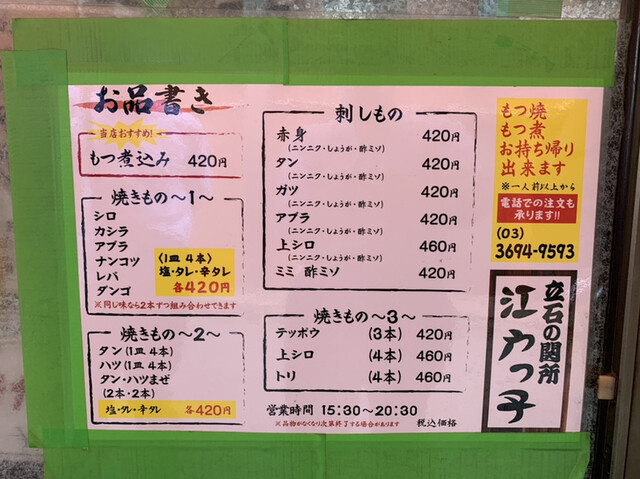 お品書き
当店おすすめ!
もつ煮込み 420円
焼きもの〜1〜
シロ
カシラ
アブラ
ナンコツ
レバ
ダンゴ
(1皿 4本)
塩・タレ・辛タレ
各420円
※同じ味なら2本ずつ組み合わせできます
焼きもの〜2〜
タン(1皿 4本)
ハツ(1皿 4本)
タン・ハツまぜ
(2本・2本)
塩・タレ・辛タレ 各420円
刺しもの
赤身 420円
(ニンニク・しょうが・酢ミソ)
タン 420円
(ニンニク・しょうが・酢ミソ)
ガツ 420円
(ニンニク・しょうが・酢ミソ)
アブラ 420円
(ニンニク・しょうが・酢ミソ)
上シロ 460円
(ニンニク・しょうが・酢ミソ)
ミミ 酢ミソ 420円
焼きもの〜3〜
テッポウ (3本) 420円
上シロ (4本) 460円
トリ (4本) 460円
営業時間 15:30〜20:30
※品物がなくなり次第終了する場合があります
税込価格
もつ焼
もつ煮
お持ち帰り
出来ます
※一人前以上から
電話での注文も
承ります!!
(03)
3694-9593
立石の関所
江戸っ子